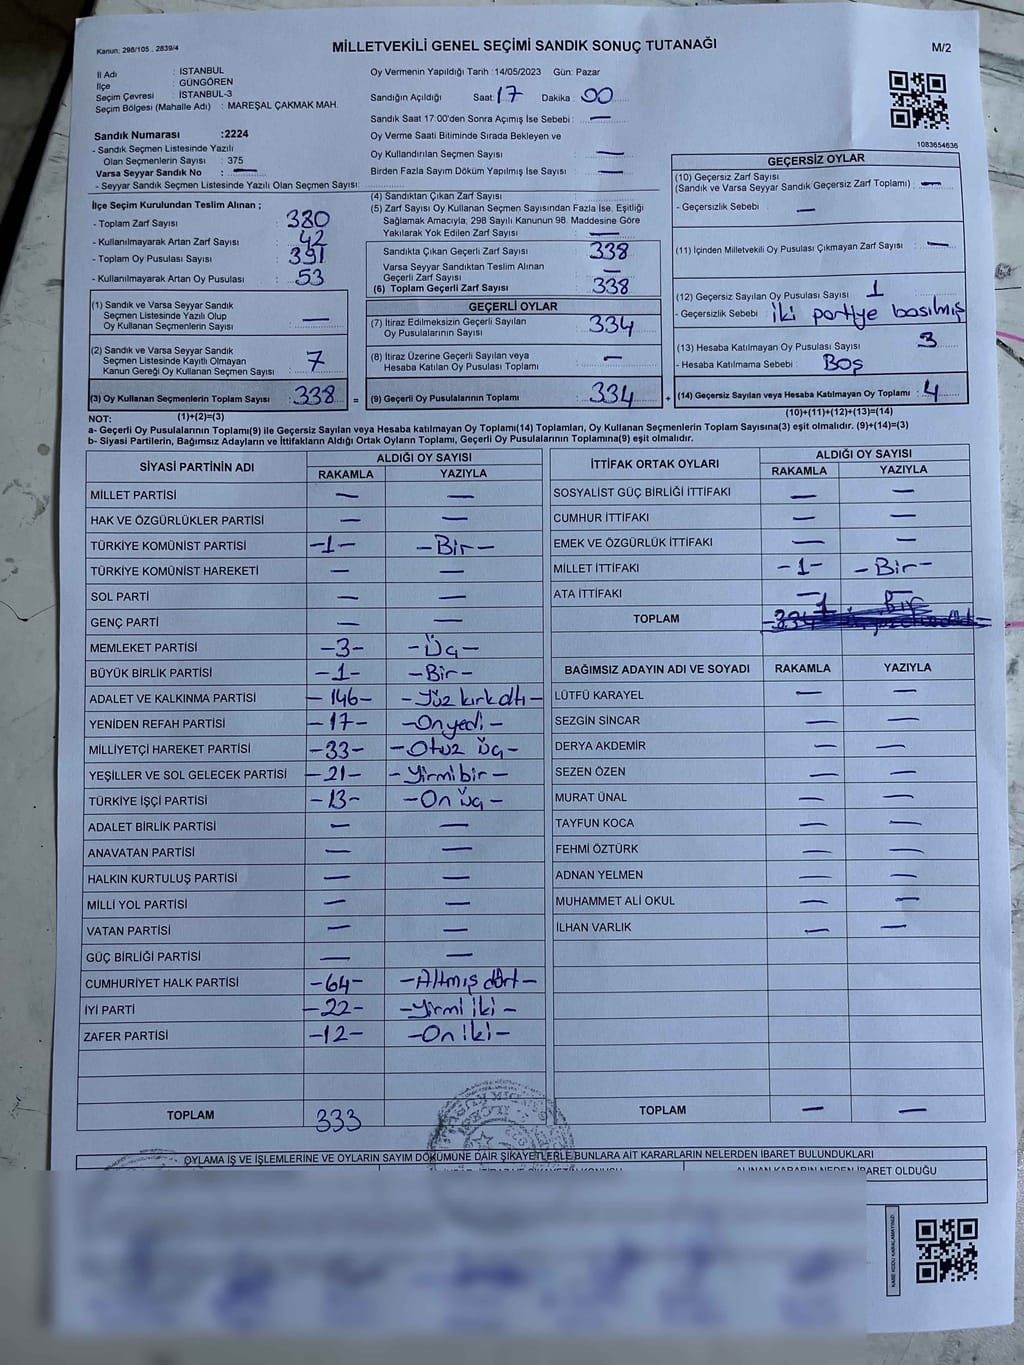 Kanun: 298/105 , 2839/4
MİLLETVEKİLİ GENEL SEÇİMİ SANDIK SONUÇ TUTANAĞI
M/2
İl Adı : İSTANBUL
İlçe : GÜNGÖREN
Seçim Çevresi : İSTANBUL-3
Seçim Bölgesi (Mahalle Adı) : MAREŞAL ÇAKMAK MAH.
Sandık Numarası :2224
- Sandık Seçmen Listesinde Yazılı
Olan Seçmenlerin Sayısı : 375
Varsa Seyyar Sandık No : —
- Seyyar Sandık Seçmen Listesinde Yazılı Olan Seçmen Sayısı:
Oy Vermenin Yapıldığı Tarih :14/05/2023 Gün: Pazar
Sandığın Açıldığı Saat: 17 Dakika : 00
Sandık Saat 17:00'den Sonra Açımış İse Sebebi : —
Oy Verme Saati Bitiminde Sırada Bekleyen ve
Oy Kullandırılan Seçmen Sayısı : —
Birden Fazla Sayım Döküm Yapılmış İse Sayısı : —
1083654636
İlçe Seçim Kurulundan Teslim Alınan ;
- Toplam Zarf Sayısı : 380
- Kullanılmayarak Artan Zarf Sayısı : 42
- Toplam Oy Pusulası Sayısı : 391
- Kullanılmayarak Artan Oy Pusulası : 53
(1) Sandık ve Varsa Seyyar Sandık
Seçmen Listesinde Yazılı Olup
Oy Kullanan Seçmenlerin Sayısı : —
(2) Sandık ve Varsa Seyyar Sandık
Seçmen Listesinde Kayıtlı Olmayan
Kanun Gereği Oy Kullanan Seçmen Sayısı : 7
(3) Oy Kullanan Seçmenlerin Toplam Sayısı : 338 =
(1)+(2)=(3)
(4) Sandıktan Çıkan Zarf Sayısı :
(5) Zarf Sayısı Oy Kullanan Seçmen Sayısından Fazla İse, Eşitliği
Sağlamak Amacıyla, 298 Sayılı Kanunun 98. Maddesine Göre
Yakılarak Yok Edilen Zarf Sayısı : —
Sandıkta Çıkan Geçerli Zarf Sayısı : 338
Varsa Seyyar Sandıktan Teslim Alınan
Geçerli Zarf Sayısı : —
(6) Toplam Geçerli Zarf Sayısı : 338
GEÇERLİ OYLAR
(7) İtiraz Edilmeksizin Geçerli Sayılan
Oy Pusulalarının Sayısı : 334
(8) İtiraz Üzerine Geçerli Sayılan veya
Hesaba Katılan Oy Pusulası Toplamı : —
(9) Geçerli Oy Pusulalarının Toplamı : 334 +
GEÇERSİZ OYLAR
(10) Geçersiz Zarf Sayısı
(Sandık ve Varsa Seyyar Sandık Geçersiz Zarf Toplamı) : —
- Geçersizlik Sebebi : —
(11) İçinden Milletvekili Oy Pusulası Çıkmayan Zarf Sayısı : —
(12) Geçersiz Sayılan Oy Pusulası Sayısı : 1
- Geçersizlik Sebebi : iki partiye basılmış
(13) Hesaba Katılmayan Oy Pusulası Sayısı : 3
- Hesaba Katılmama Sebebi : Boş
(14) Geçersiz Sayılan veya Hesaba Katılmayan Oy Toplamı : 4
(10)+(11)+(12)+(13)=(14)
NOT:
a- Geçerli Oy Pusulalarının Toplamı(9) ile Geçersiz Sayılan veya Hesaba katılmayan Oy Toplamı(14) Toplamları, Oy Kullanan Seçmenlerin Toplam Sayısına(3) eşit olmalıdır. (9)+(14)=(3)
b- Siyasi Partilerin, Bağımsız Adayların ve İttifakların Aldığı Ortak Oyların Toplamı, Geçerli Oy Pusulalarının Toplamına(9) eşit olmalıdır.
SİYASİ PARTİNİN ADI ALDIĞI OY SAYISI
RAKAMLA YAZIYLA
MİLLET PARTİSİ — —
HAK VE ÖZGÜRLÜKLER PARTİSİ — —
TÜRKİYE KOMÜNİST PARTİSİ -1- -Bir-
TÜRKİYE KOMÜNİST HAREKETİ — —
SOL PARTİ — —
GENÇ PARTİ — —
MEMLEKET PARTİSİ -3- -Üç-
BÜYÜK BİRLİK PARTİSİ -1- -Bir-
ADALET VE KALKINMA PARTİSİ -146- -Yüz kırk altı-
YENİDEN REFAH PARTİSİ -17- -On yedi-
MİLLİYETÇİ HAREKET PARTİSİ -33- -Otuz üç-
YEŞİLLER VE SOL GELECEK PARTİSİ -21- -Yirmi bir-
TÜRKİYE İŞÇİ PARTİSİ -13- -On üç-
ADALET BİRLİK PARTİSİ — —
ANAVATAN PARTİSİ — —
HALKIN KURTULUŞ PARTİSİ — —
MİLLİ YOL PARTİSİ — —
VATAN PARTİSİ — —
GÜÇ BİRLİĞİ PARTİSİ — —
CUMHURİYET HALK PARTİSİ -64- -Altmış dört-
İYİ PARTİ -22- -Yirmi iki-
ZAFER PARTİSİ -12- -On iki-
TOPLAM 333
İTTİFAK ORTAK OYLARI ALDIĞI OY SAYISI
RAKAMLA YAZIYLA
SOSYALİST GÜÇ BİRLİĞİ İTTİFAKI — —
CUMHUR İTTİFAKI — —
EMEK VE ÖZGÜRLÜK İTTİFAKI — —
MİLLET İTTİFAKI -1- -Bir-
ATA İTTİFAKI — —
TOPLAM 1 Bir
BAĞIMSIZ ADAYIN ADI VE SOYADI RAKAMLA YAZIYLA
LÜTFÜ KARAYEL — —
SEZGİN SİNCAR — —
DERYA AKDEMİR — —
SEZEN ÖZEN — —
MURAT ÜNAL — —
TAYFUN KOCA — —
FEHMİ ÖZTÜRK — —
ADNAN YELMEN — —
MUHAMMET ALİ OKUL — —
İLHAN VARLIK — —
TOPLAM — —
OYLAMA İŞ VE İŞLEMLERİNE VE OYLARIN SAYIM DÖKÜMÜNE DAİR ŞİKAYETLERLE BUNLARA AİT KARARLARIN NELERDEN İBARET BULUNDUKLARI
ALINAN KARARIN NEDEN İBARET OLDUĞU
KARE KODU KARALAMAYINIZ!